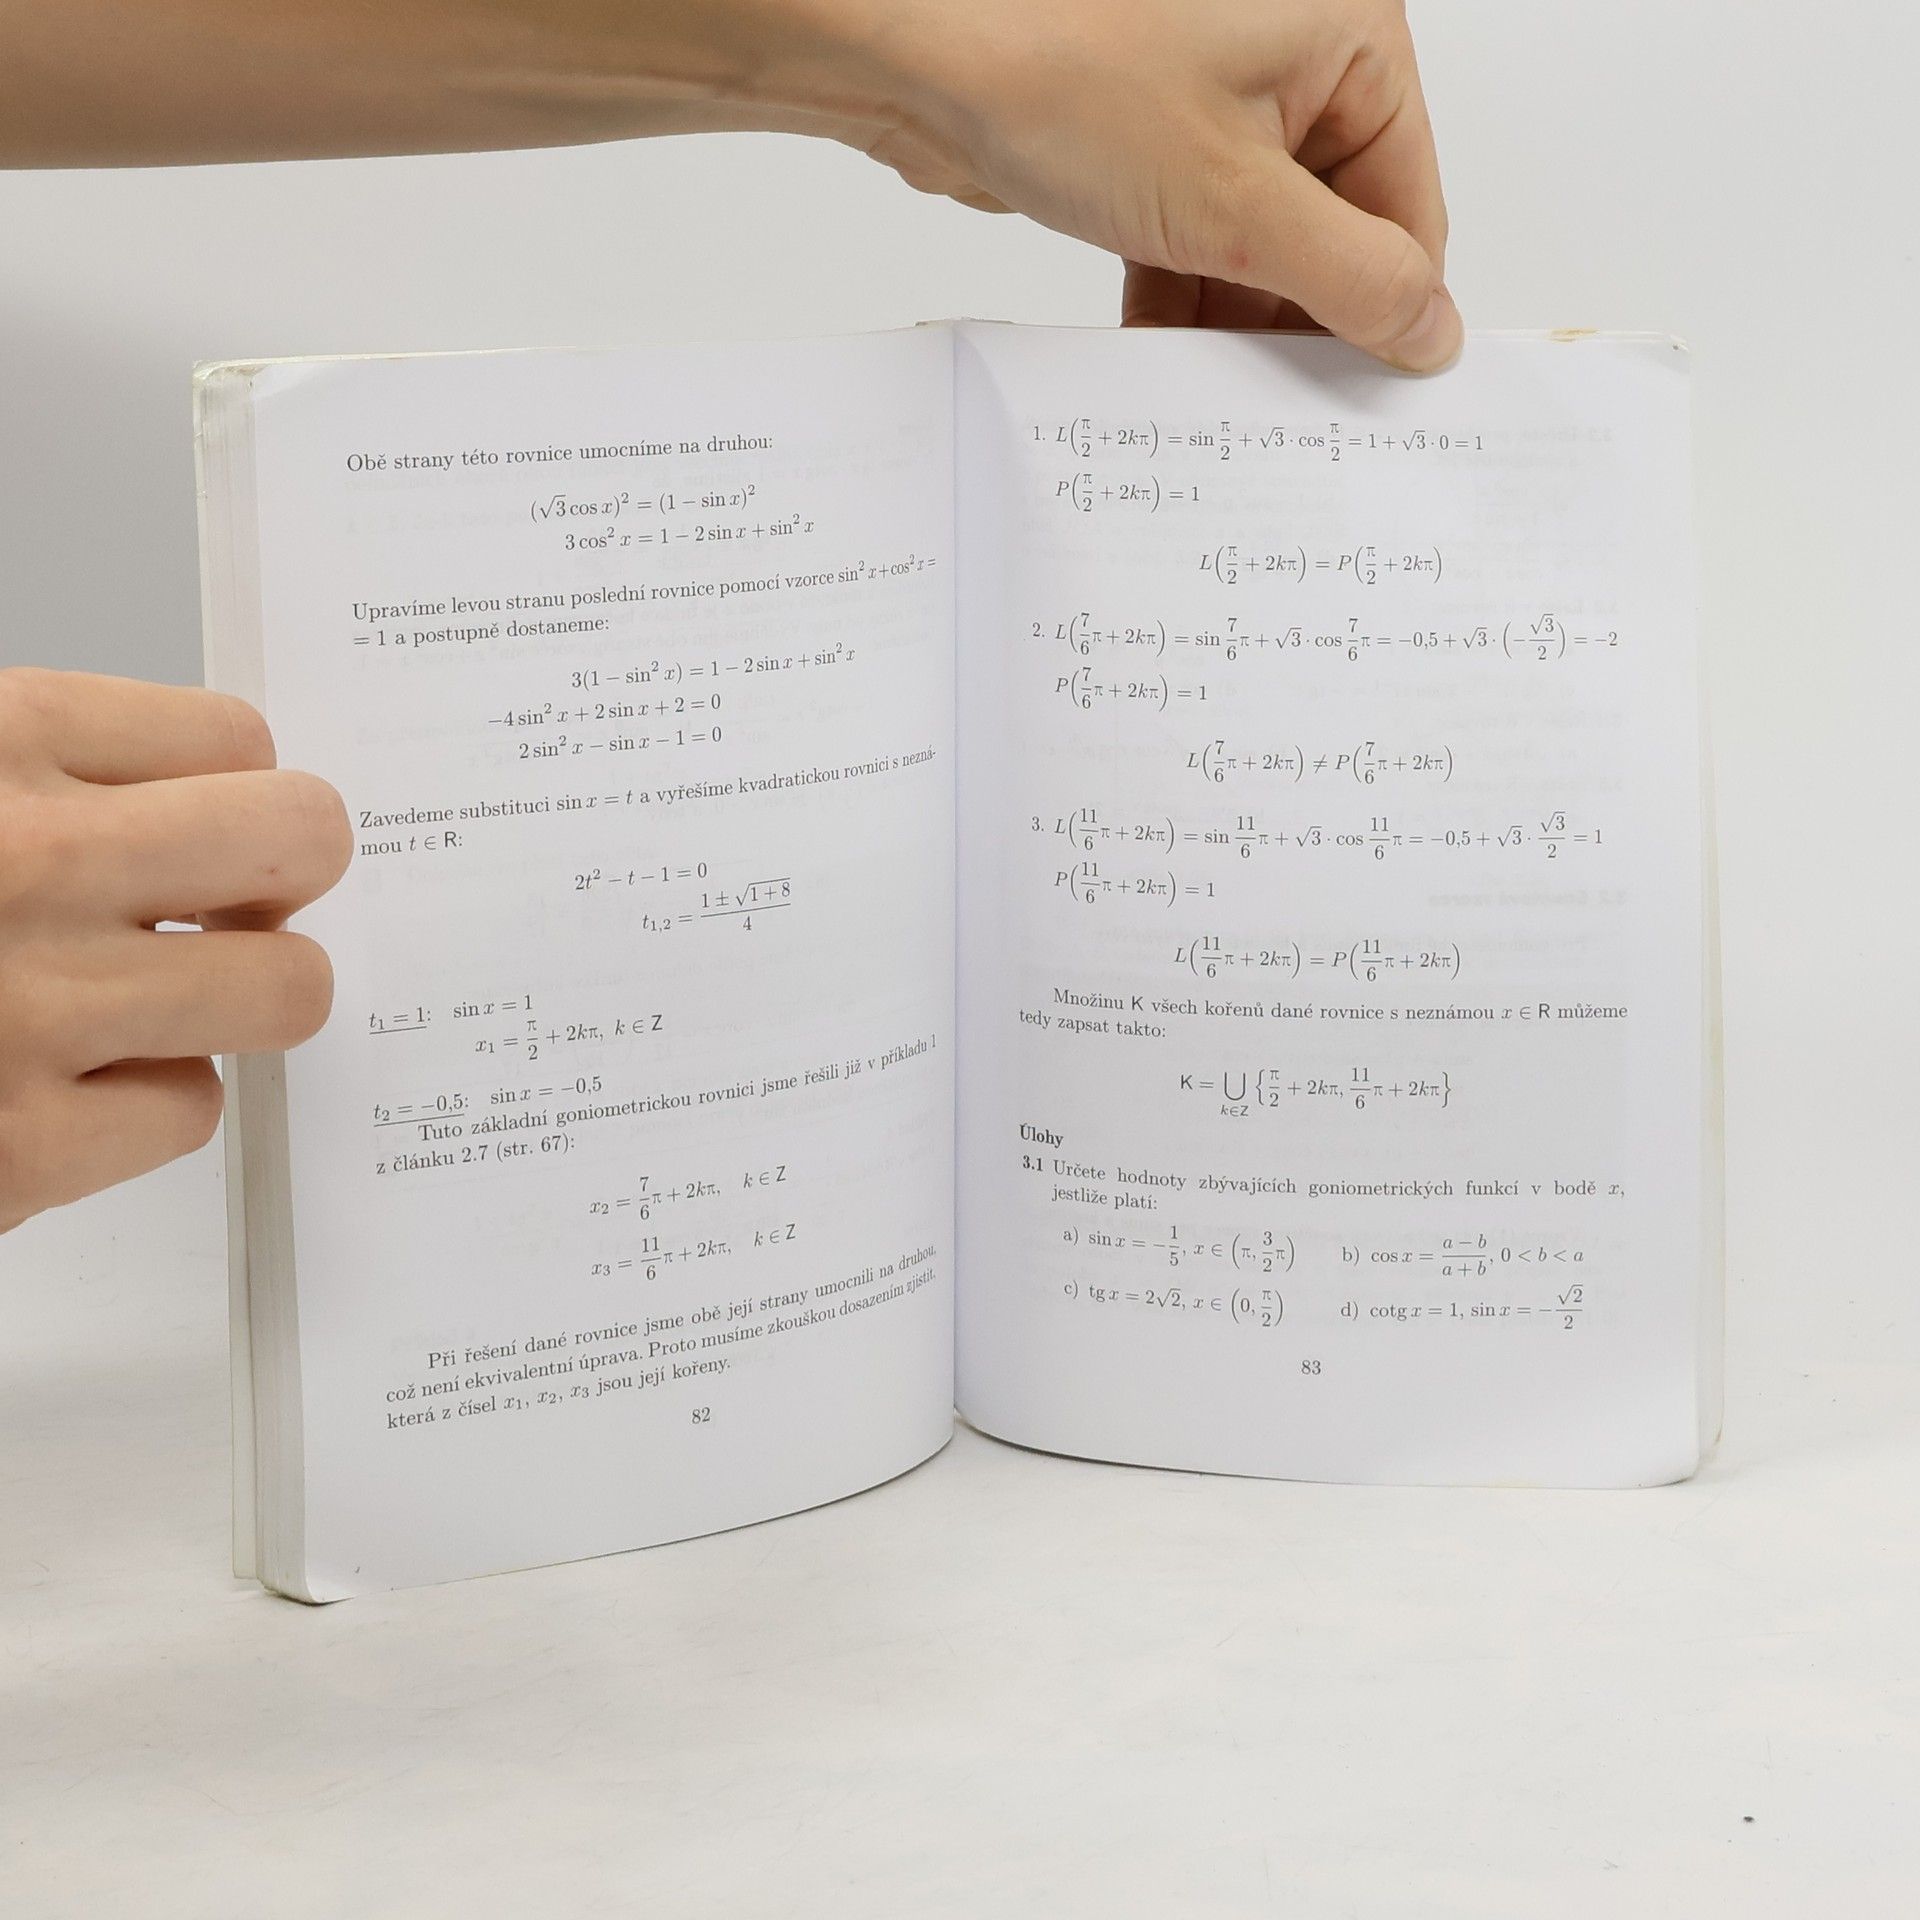 Obě strany této rovnice umocníme na druhou:
(√3 cos x)² = (1 − sin x)²
3 cos² x = 1 − 2 sin x + sin² x
Upravíme levou stranu poslední rovnice pomocí vzorce sin² x + cos² x =
= 1 a postupně dostaneme:
3(1 − sin² x) = 1 − 2 sin x + sin² x
−4 sin² x + 2 sin x + 2 = 0
2 sin² x − sin x − 1 = 0
Zavedeme substituci sin x = t a vyřešíme kvadratickou rovnici s nezná-
mou t ∈ R:
2t² − t − 1 = 0
t₁,₂ = (1 ± √(1 + 8))/4
t₁ = 1: sin x = 1
x₁ = π/2 + 2kπ, k ∈ Z
t₂ = −0,5: sin x = −0,5
Tuto základní goniometrickou rovnici jsme řešili již v příkladu 1
z článku 2.7 (str. 67):
x₂ = 7/6 π + 2kπ, k ∈ Z
x₃ = 11/6 π + 2kπ, k ∈ Z
Při řešení dané rovnice jsme obě její strany umocnili na druhou,
což není ekvivalentní úprava. Proto musíme zkouškou dosazením zjistit,
která z čísel x₁, x₂, x₃ jsou její kořeny.
82
1. L(π/2 + 2kπ) = sin π/2 + √3 · cos π/2 = 1 + √3 · 0 = 1
P(π/2 + 2kπ) = 1
L(π/2 + 2kπ) = P(π/2 + 2kπ)
2. L(7/6 π + 2kπ) = sin 7/6 π + √3 · cos 7/6 π = −0,5 + √3 · (−√3/2) = −2
P(7/6 π + 2kπ) = 1
L(7/6 π + 2kπ) ≠ P(7/6 π + 2kπ)
3. L(11/6 π + 2kπ) = sin 11/6 π + √3 · cos 11/6 π = −0,5 + √3 · √3/2 = 1
P(11/6 π + 2kπ) = 1
L(11/6 π + 2kπ) = P(11/6 π + 2kπ)
Množinu K všech kořenů dané rovnice s neznámou x ∈ R můžeme
tedy zapsat takto:
K = ⋃ k∈Z {π/2 + 2kπ, 11/6 π + 2kπ}
Úlohy
3.1 Určete hodnoty zbývajících goniometrických funkcí v bodě x,
jestliže platí:
a) sin x = −1/5, x ∈ (π, 3/2 π) b) cos x = (a − b)/(a + b), 0 < b < a
c) tg x = 2√2, x ∈ (0, π/2) d) cotg x = 1, sin x = −√2/2
83